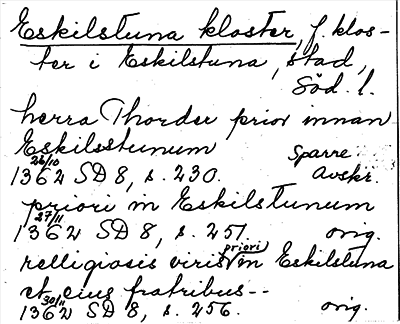 Eskilstuna kloster, f. klos-
ter i Eskilstuna, stad,
Söd. l.
herra Thorder prior innan
Eskilsstunum Sparre
26/10 1362 SD 8, s. 230. Avskr.
priori in Eskilstunum
27/11 1362 SD 8, s. 251. orig.
relligiosis viris priori in Eskilstuna
et eius fratribus --
30/11 1362 SD 8, s. 256. orig.